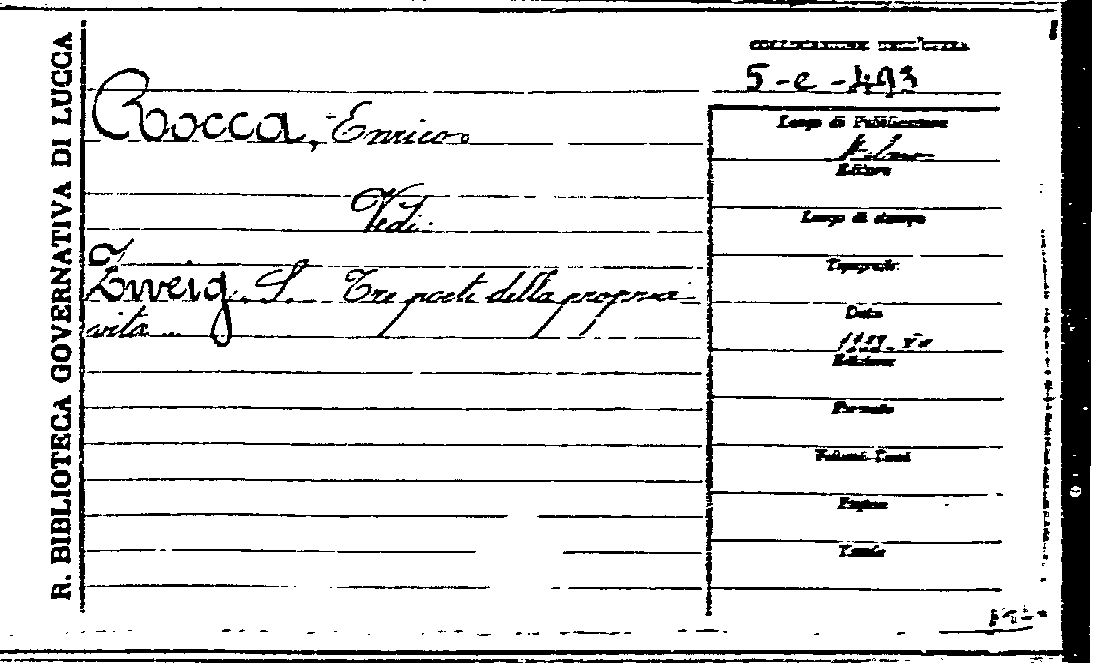 R. BIBLIOTECA GOVERNATIVA DI LUCCA
COLLOCAZIONE DELL'OPERA
5-e-493
Rocca, Enrico
Vedi:
Zweig, S. Tre poeti della propria
vita
Luogo di Pubblicazione
Editore
Luogo di stampa
Tipografo
Data
Edizione
Formato
Volumi Tomi
Pagine
Tavole